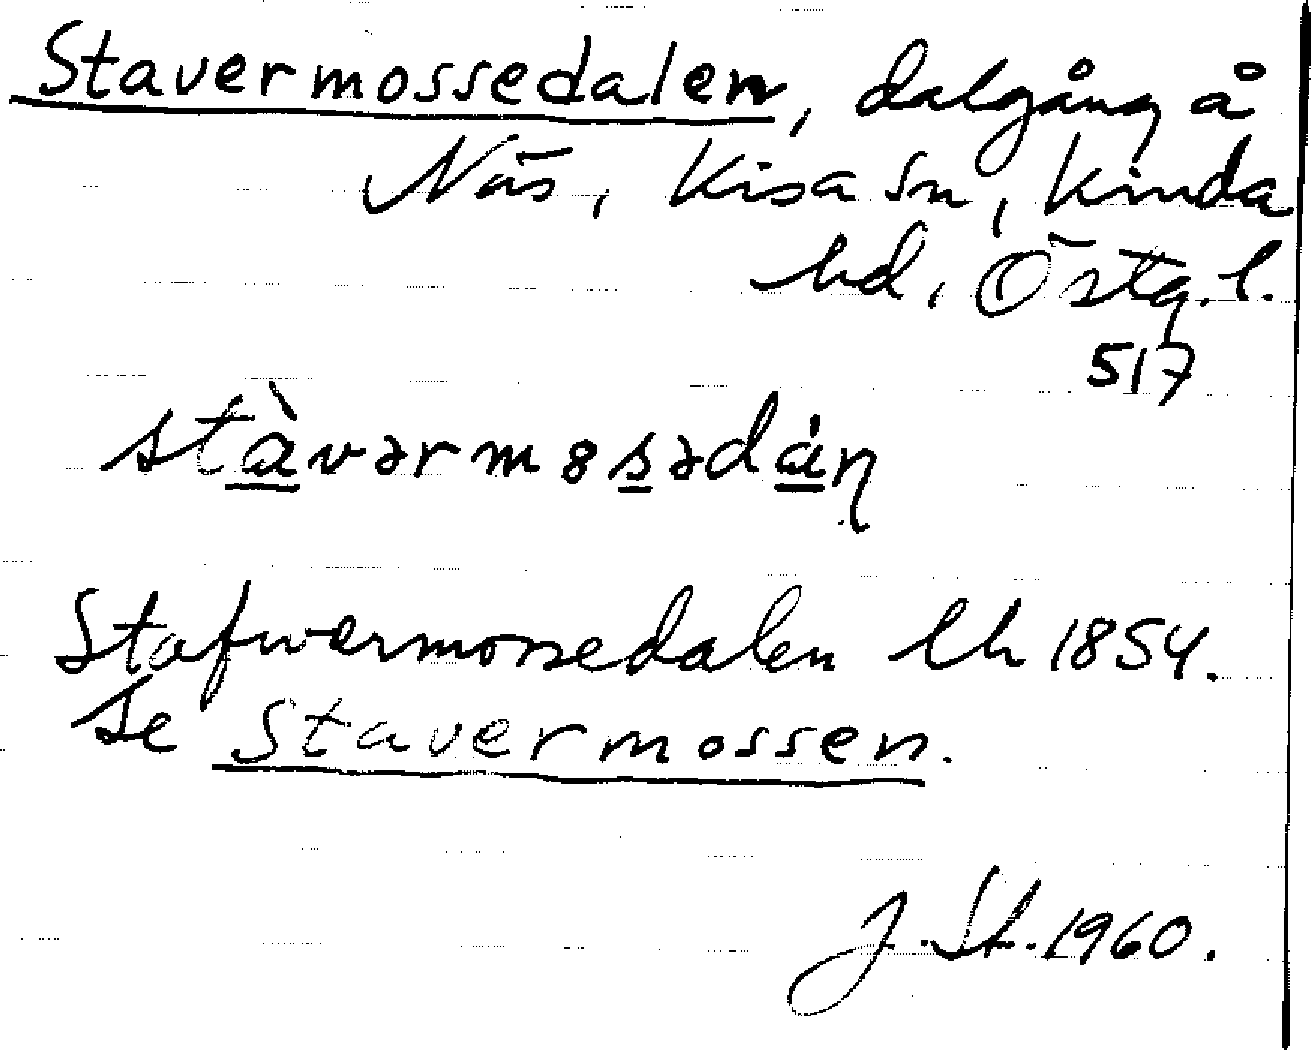 Stavermossedalen, dalgång å
Näs, Kisa sn, Kinda
hd, Östg. l.
517
stàvərm8sədáŋ
Stafwermossedalen lh 1854.
Se Stavermossen.
J. St. 1960.